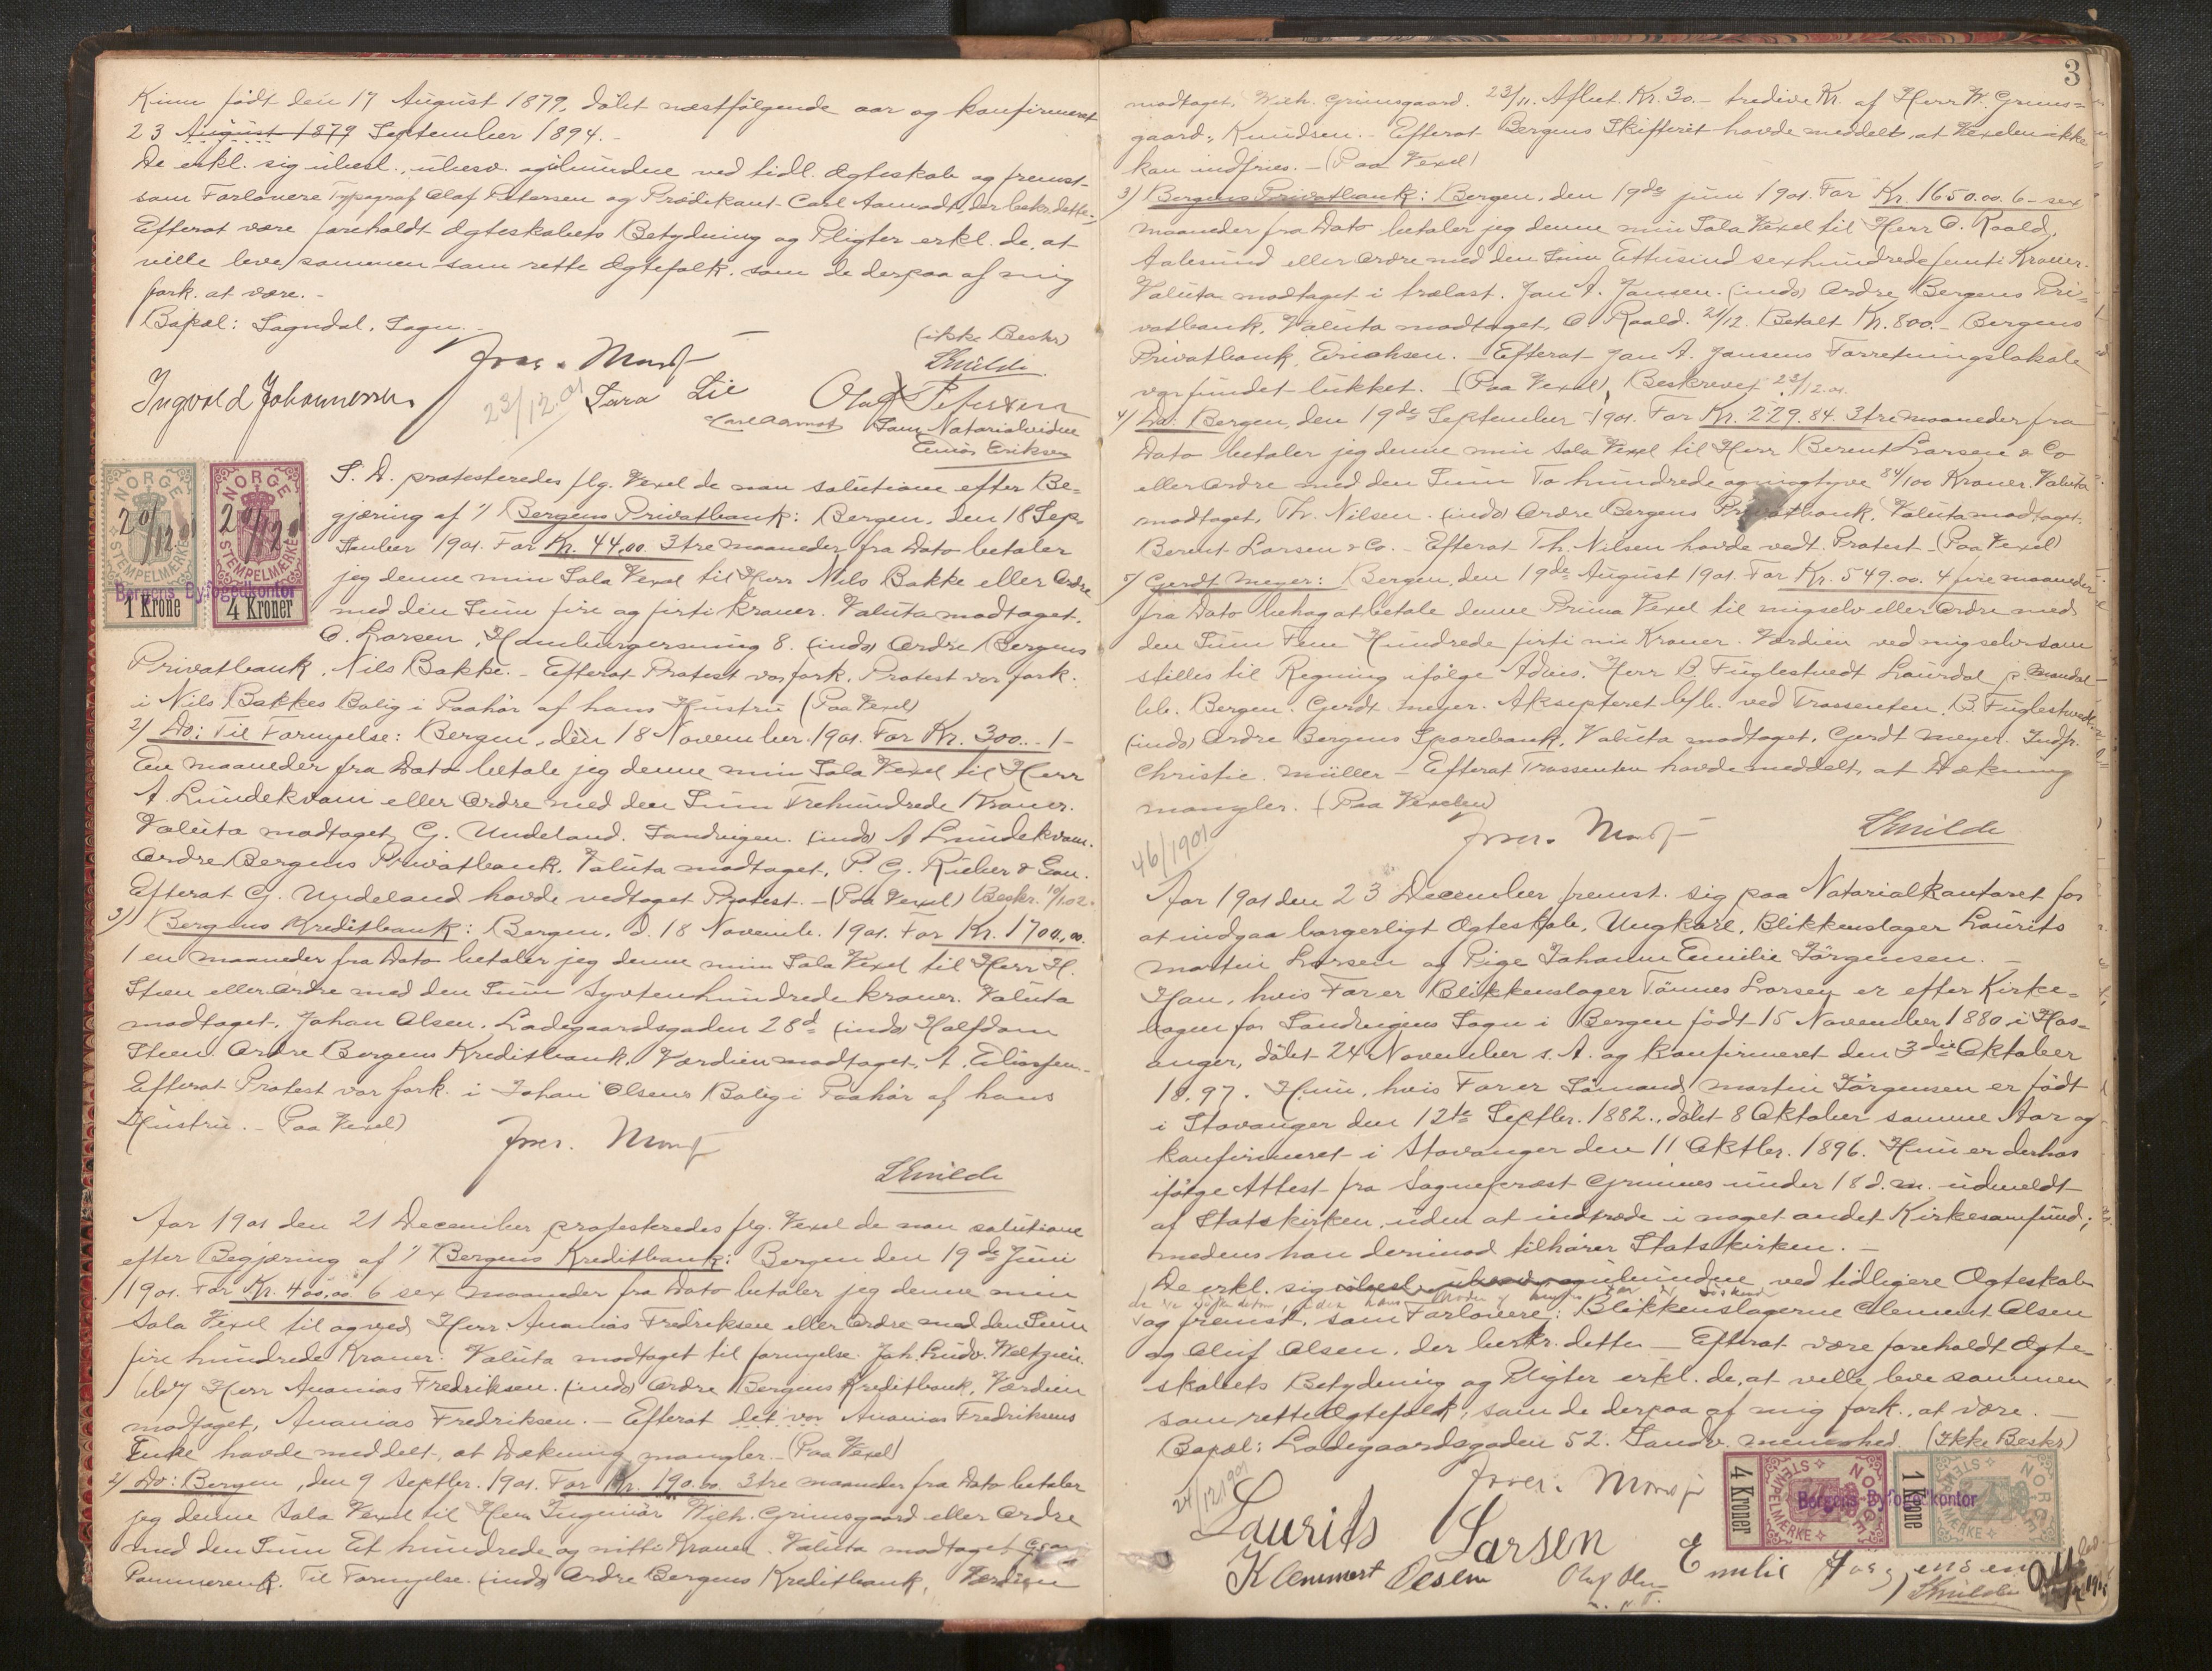 Kinn født den 17 August 1879, døbt næstfølgende aar og konfirmeret
23 August 1879 September 1894.-
De erkl. sig ubesl., ubesv. og ubundne ved tidl. Ægteskab og fremst-
som Forlovere Typograf Olaf Petersen og Prædikant Carl Aamodt, der bekr. dette.-
Efterat være foreholdt Ægteskabets Betydning og Pligter erkl. de, at
ville leve sammen som rette Ægtefolk, som de derpaa af mig
fork. at være.-
Bopæl: Sogndal, Sogn.-
(ikke Beskr)
Smilde
Ingvald Johannessen
23/12.01
Sara Lie
Olaf Petersen
Carl Aamodt
Som Notarialvidne
Eriksen
NORGE
STEMPELMÆRKE
1 Krone
NORGE
STEMPELMÆRKE
4 Kroner
Bergens Byfogedkontor
S. D. protesteredes flg. Vexel de non solutione efter Be-
gjæring af 1/ Bergens Privatbank: Bergen, den 18 Sep-
tember 1901. For Kr. 44,00. 3 tre maaneder fra Dato betaler
jeg denne min Sola Vexel til Herr Nils Bakke eller Ordre
med den Sum fire og firti kroner. Valuta modtaget.
O. Larsen, Hamburgersmug 8. (indo) Ordre Bergens
Privatbank, Nils Bakke.- Efterat Protest var fork. Protest var fork.
i Nils Bakkes Bolig i Paahør af hans Hustru (Paa Vexel)
2) Do: Til Fornyelse: Bergen, den 18 November 1901. For Kr. 300.- 1-
Een maaneder fra Dato betale jeg denne min Sola Vexel til Herr
A. Lundekvam eller Ordre med den Sum Trehundrede Kroner.
Valuta modtaget, G. Undeland. Sandvigen. (indo) A Lundekvam.
Ordre Bergens Privatbank, Valuta modtaget, P. G. Rieber & Søn.
Efterat G. Undeland havde vedtaget Protest.- (Paa Vexel) Beskr. 10/1 02.
3) Bergens Kreditbank: Bergen, d. 18 Novemb. 1901. For Kr. 1700,00.
1 en maaneder fra Dato betaler jeg denne min Sola Vexel til Herr H.
Steen eller Ordre med den Sum Syvtenhundrede kroner. Valuta
modtaget, Johan Olsen, Ladegaardsgaden 28d (indo) Halfdan
Steen. Ordre Bergens Kreditbank, Værdien modtaget, A.
Efterat Protest var fork. i Johan Olsens Bolig i Paahør af hans
Hustru.- (Paa Vexel)
Smilde
Aar 1901 den 21 December protesteredes flg. Vexel de non solutione
efter Begjæring af 1/ Bergens Kreditbank: Bergen den 19de Juni
1901. For Kr. 400,00. 6 sex maaneder fra Dato betaler jeg denne min
Sola Vexel til og ved Herr Ananias Fredriksen eller Ordre med den Sum
fire hundrede Kroner. Valuta modtaget til fornyelse. Joh. Ludv. Weltzien.
Herr Ananias Fredriksen. (indo) Ordre Bergens Kreditbank, Værdien
modtaget, Ananias Fredriksen.- Efterat det var Ananias Fredriksens
Enke havde meddelt, at Dækning mangler.- (Paa Vexel)
2) Do: Bergen, den 9 Septbr. 1901. For Kr. 190.00. 3 tre maaneder fra Dato betaler
jeg denne Sola Vexel til Herr Ingeniør Wilh. Grimsgaard eller Ordre
med den Sum Et hundrede og nitti Kroner. Valuta modtaget
Til Fornyelse. (indo) Ordre Bergens Kreditbank, Værdien
3
modtaget, Wilh. Grimsgaard. 23/11. Afbet. Kr. 30.- tredive Kr. af Herr W. Grims-
gaard, Knudsen.- Efterat Bergens Skifteret havde meddelt, at Vexelen ikke
kan indfries.- (Paa Vexel)
3) Bergens Privatbank: Bergen, den 19de juni 1901. For Kr. 1650.00. 6- sex
maaneder fra Dato betaler jeg denne min Sola Vexel til Herr O. Roald,
Aalesund eller Ordre med den Sum Ettusind sexhundrede femti Kroner.
Valuta modtaget i trælast. Jan A. Jansen. (indo) Ordre Bergens Pri-
vatbank, Valuta modtaget, O. Roald. 21/12. Betalt Kr. 800.- Bergens
Privatbank, Erichsen.- Efterat Jan A. Jansens Forretningslokale
var fundet lukket. (Paa Vexel), Beskrevet 23/12.01.
4) Do: Bergen, den 19de September 1901. For Kr. 229.84. 3 tre maaneder fra
Dato betaler jeg denne min Sola Vexel til Herr Berent Larsen & Co
eller Ordre med den Sum To hundrede og niogtyve 84/100 Kroner. Valuta
modtaget, Th. Nilsen. (indo) Ordre Bergens Privatbank, Valuta modtaget.
Berent Larsen & Co.- Efterat Th. Nilsen havde vedt. Protest.- (Paa Vexel)
5) Gerdt Meyer: Bergen, den 19de August 1901. For Kr. 549.00. 4 fire maaneder
fra Dato behag at betale denne Prima Vexel til mig selv eller Ordre med
den Sum Fem Hundrede firti ni Kroner. Værdien ved mig selv som
stilles til Regning ifølge Advis. Herr B. Fuglestvedt Laurdal p. Mandal-
btb. Bergen. Gerdt Meyer. Aksepteret btb. ved Trassenten. B Fuglestvedt.
(indo) Ordre Bergens Sparebank, Valuta modtaget, Gerdt Meyer. Indfr.
Christie. Müller - Efterat Trassenten havde meddelt, at Dækning
mangler. (Paa Vexelen)
Smilde
46/1901
Aar 1901 den 23 December fremst. sig paa Notarialkontoret for
at indgaa borgerligt Ægteskab, Ungkarl, Blikkenslager Laurits
Martin Larsen og Pige Johanne Emilie Jørgensen.-
Han, hvis Far er Blikkenslager Tønnes Larsen er efter Kirke-
bogen for Sandvigens Sogn i Bergen født 15 November 1880 i Hos-
anger, døbt 24 November s. A. og konfirmeret den 3die Oktober
1897. Hun, hvis Far er Sømand Martin Jørgensen er født
i Stavanger den 12te Septbr. 1882., døbt 8 Oktober samme Aar og
konfirmeret i Stavanger den 11 Oktbr. 1896. Hun er derhos
ifølge Attest fra Sognepræst Grimnes under 18 d. m. udmeldt
af Statskirken, uden at indtræde i noget andet Kirkesamfund;
medens han derimod tilhører Statskirken.-
De erkl. sig ubesl., ubesv. og ubundne ved tidligere Ægteskab
og fremst. som Forlovere: Blikkenslagerne Clement Olsen
og Oluf Olsen, der bekr. dette.- Efterat være foreholdt Ægte-
skabets Betydning og Pligter erkl. de, at ville leve sammen
som rette Ægtefolk, som de derpaa af mig fork., at være.-
Bopæl: Ladegaardsgaden 52. Sandv. menighed. (Ikke Beskr.)
24/12 1901
4 Kroner
STEMPELMÆRKE
NORGE
1 Krone
STEMPELMÆRKE
NORGE
Bergens Byfogedkontor
Laurits Larsen
Emilie Jørgensen
Klemmert Olsen
Oluf Olsen
Smilde